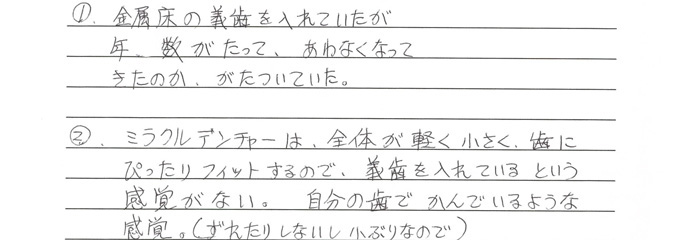 ①. 金属床の義歯を入れていたが
年、数がたって、あわなくなって
きたのか、がたついていた。
②. ミラクルデンチャーは、全体が軽く小さく、歯に
ぴったりフィットするので、義歯を入れているという
感覚がない。 自分の歯でかんでいるような
感覚。(ずれたりしないし小ぶりなので)